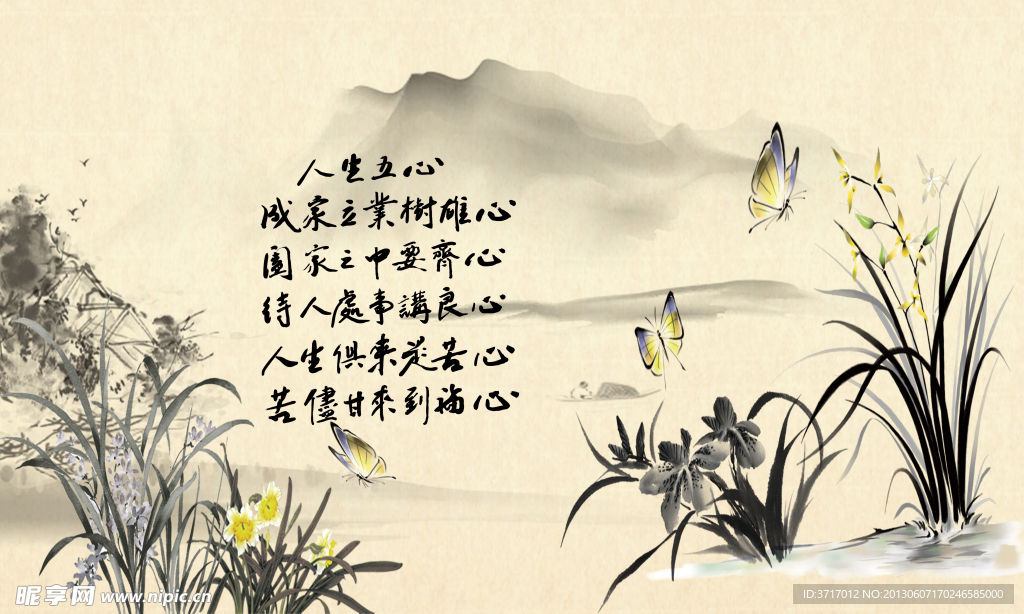 人生五心
成家立業樹雄心
園家之中要齊心
待人處事講良心
人生俱来從苦心
苦儘甘來到福心
昵享网 www.nipic.cn
ID:3717012 NO:20130607170246585000